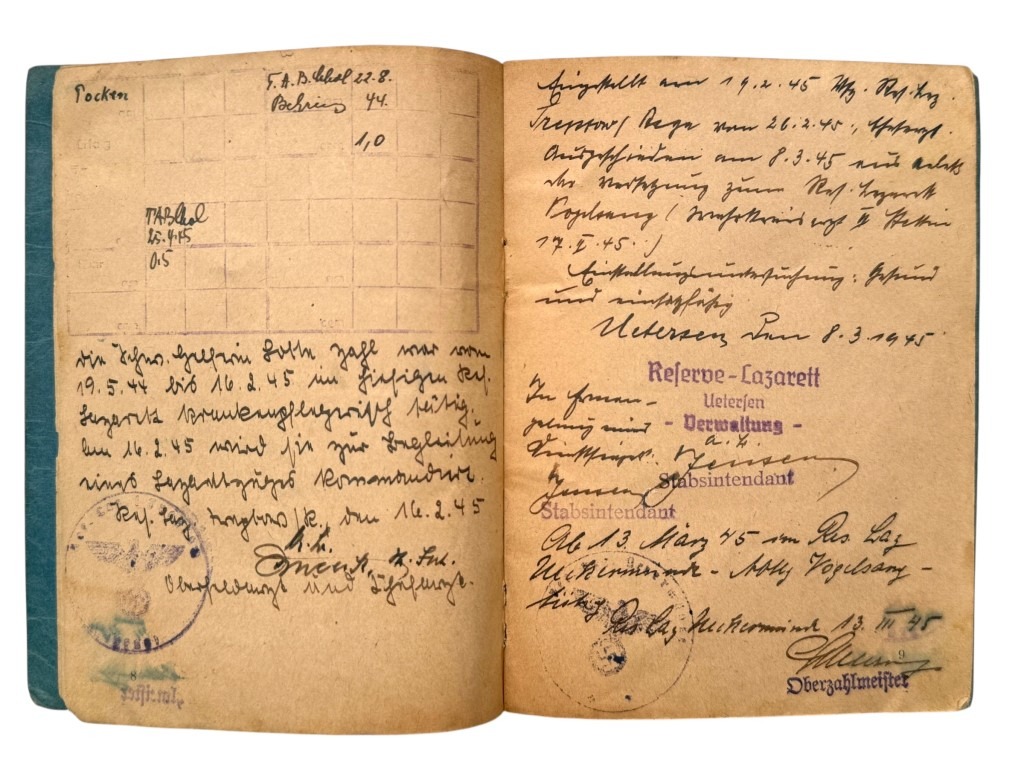 Pocken
T.A.B. Chol 22.8.
Behring 44.
1,0
TAB Chol
25.4.45
0.5
Die Schw. Helferin Lotte Zahl war vom
19.5.44 bis 16.2.45 im hiesigen Res.
Lazarett krankenpflegerisch tätig.
Am 16.2.45 wird sie zur Begleitung
eines Lazarettzuges kommandiert.
Res. Laz. Treptow/R., den 16.2.45
Oberfeldarzt und Chefarzt.
8
Eingestellt am 19.2.45 Res. Laz.
Treptow/Rega vom 26.2.45, Chefarzt.
Ausgeschieden am 8.3.45 aus
der Versetzung zum Res. Lazarett
Vogelsang (Wehrkreisarzt II Stettin
17.II.45.)
Einstellungsuntersuchung: Gesund
und einsatzfähig
Uetersen, den 8.3.1945
Reserve-Lazarett
Uetersen
- Verwaltung -
In Erman-
gelung eines
Dienstsiegels
Jensen
Stabsintendant
Jensen
Stabsintendant
Ab 13. März 45 im Res. Laz
Ueckermünde - Abtlg Vogelsang -
tätig
Res. Laz Ueckermünde 13. III 45
9
Oberzahlmeister